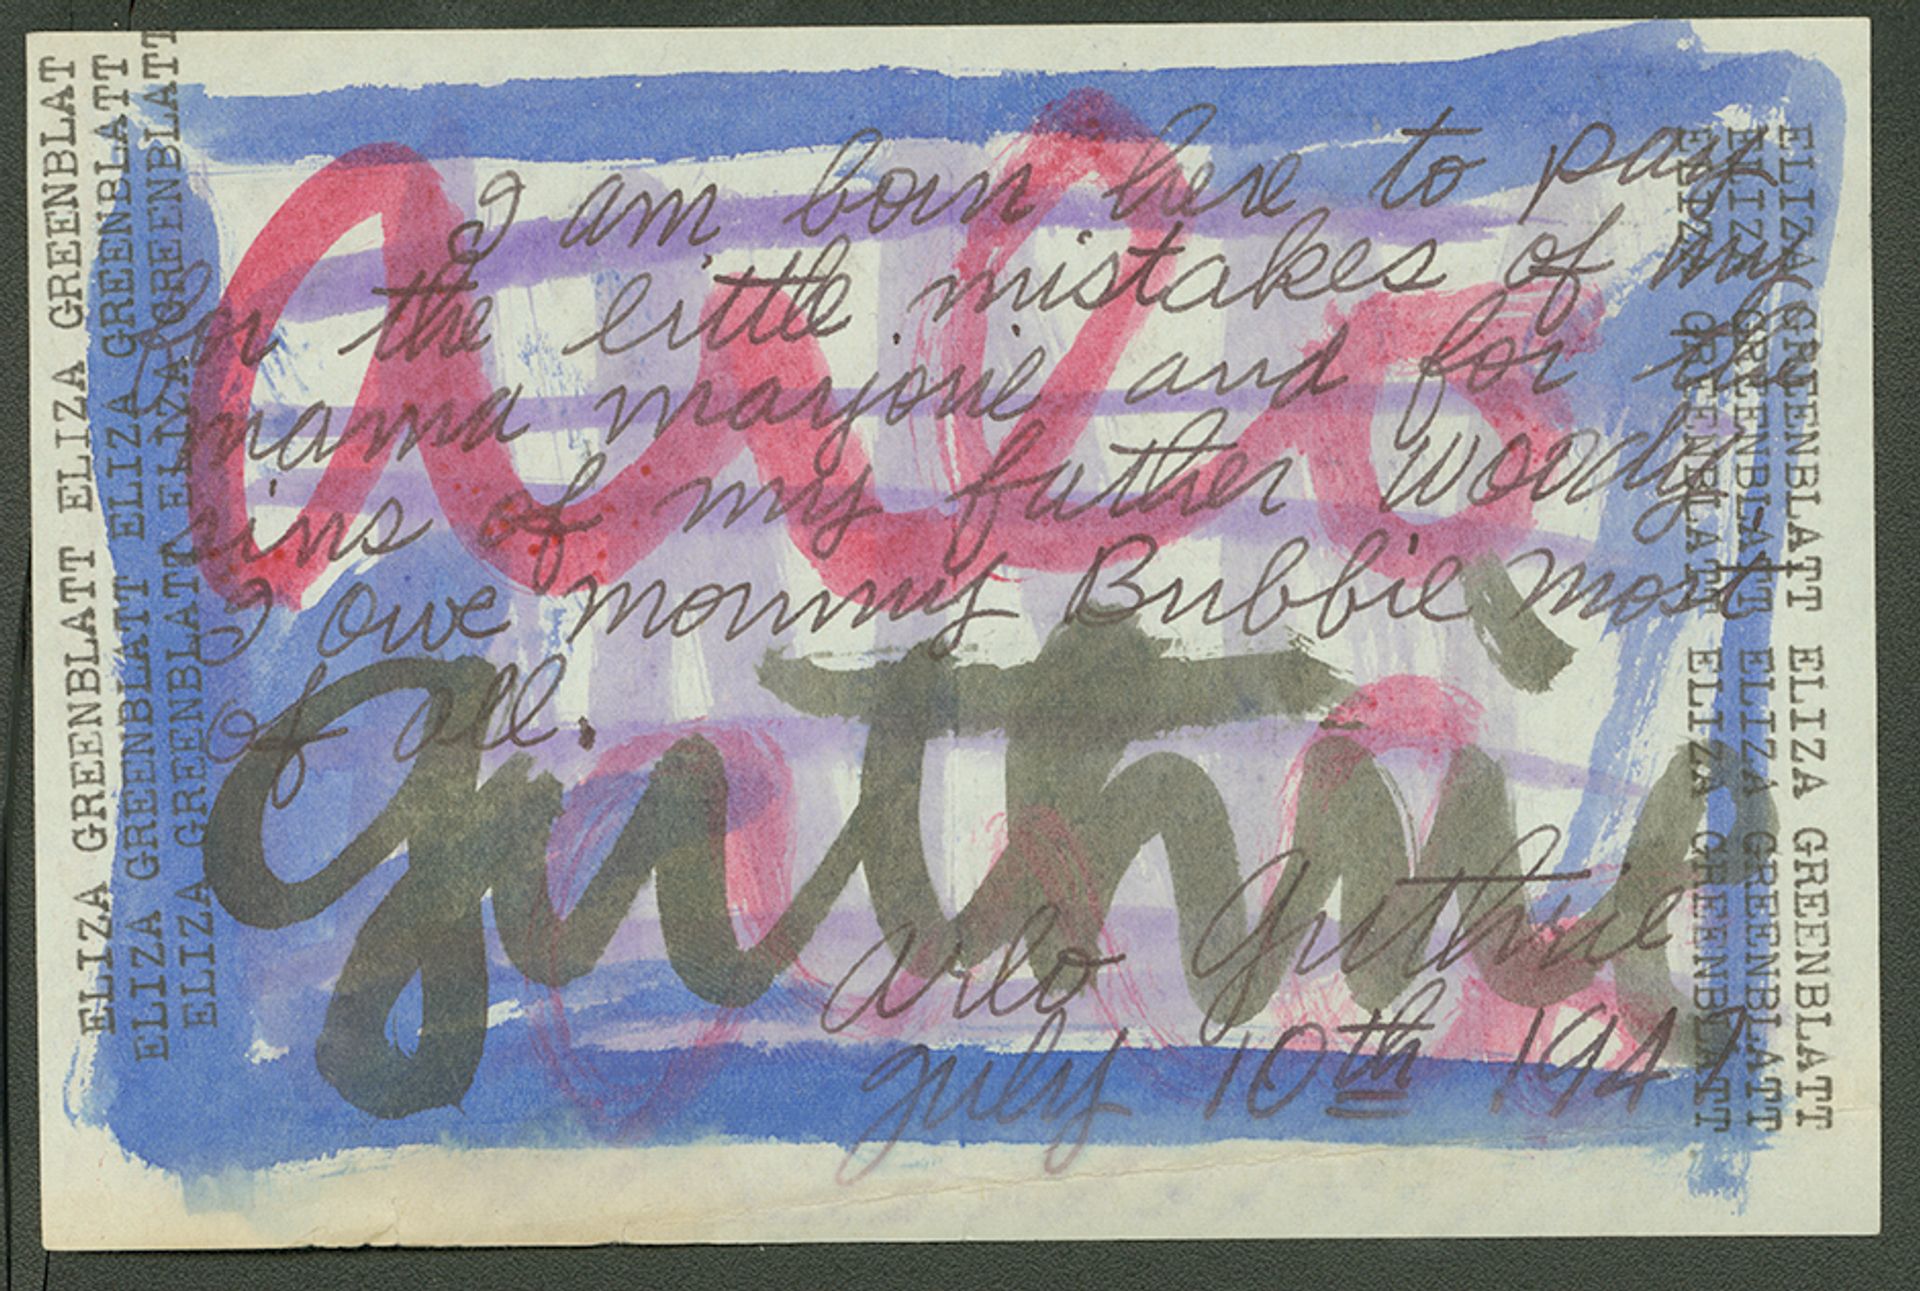 I am born here to pay
for the little mistakes of my
mama marjorie and for the
sins of my father woody.
I owe mommy Bubbie most
of all.
arlo guthrie
july 10th 1947
arlo
guthrie
ELIZA GREENBLATT ELIZA GREENBLAT
ELIZA GREENBLATT ELIZA GREENBLATT
ELIZA GREENBLATT ELIZA GREENBLATT
ELIZA GREENBLATT ELIZA GREENBLATT
ELIZA GREENBLATT ELIZA GREENBLATT
ELIZA GREENBLATT ELIZA GREENBLATT